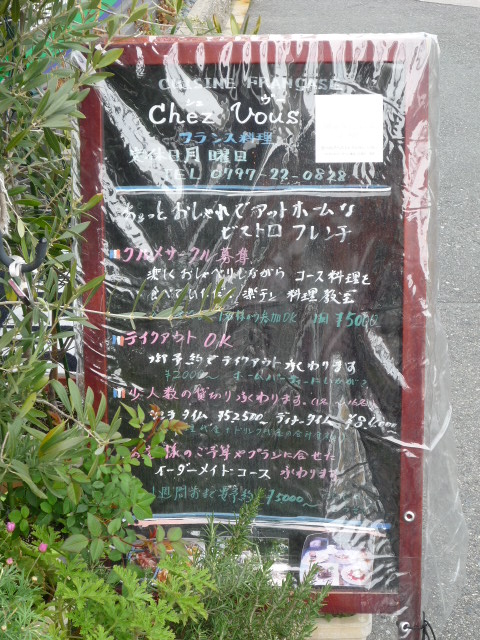 CUISINE FRANÇAISE
シェ ヴー
Chez Vous
フランス料理
定休日 月曜日
TEL 0797-22-0828
ちょっとおしゃれでアットホームな
ビストロ フレンチ
グルメサークル募集
楽しくおしゃべりしながら コース料理を
食べていただく 楽チン 料理教室
参加OK 1回 ¥5000
テイクアウト OK
御予約でテイクアウト承ります
¥2000〜 ホームパーティーにいかがっ
少人数の貸切り承わります。
ランチタイム ¥52500〜 ディナータイム ¥84000
お客様のご予算やプランに合せた
オーダーメイド・コース 承わります
1週間前まで要予約 ¥5000〜